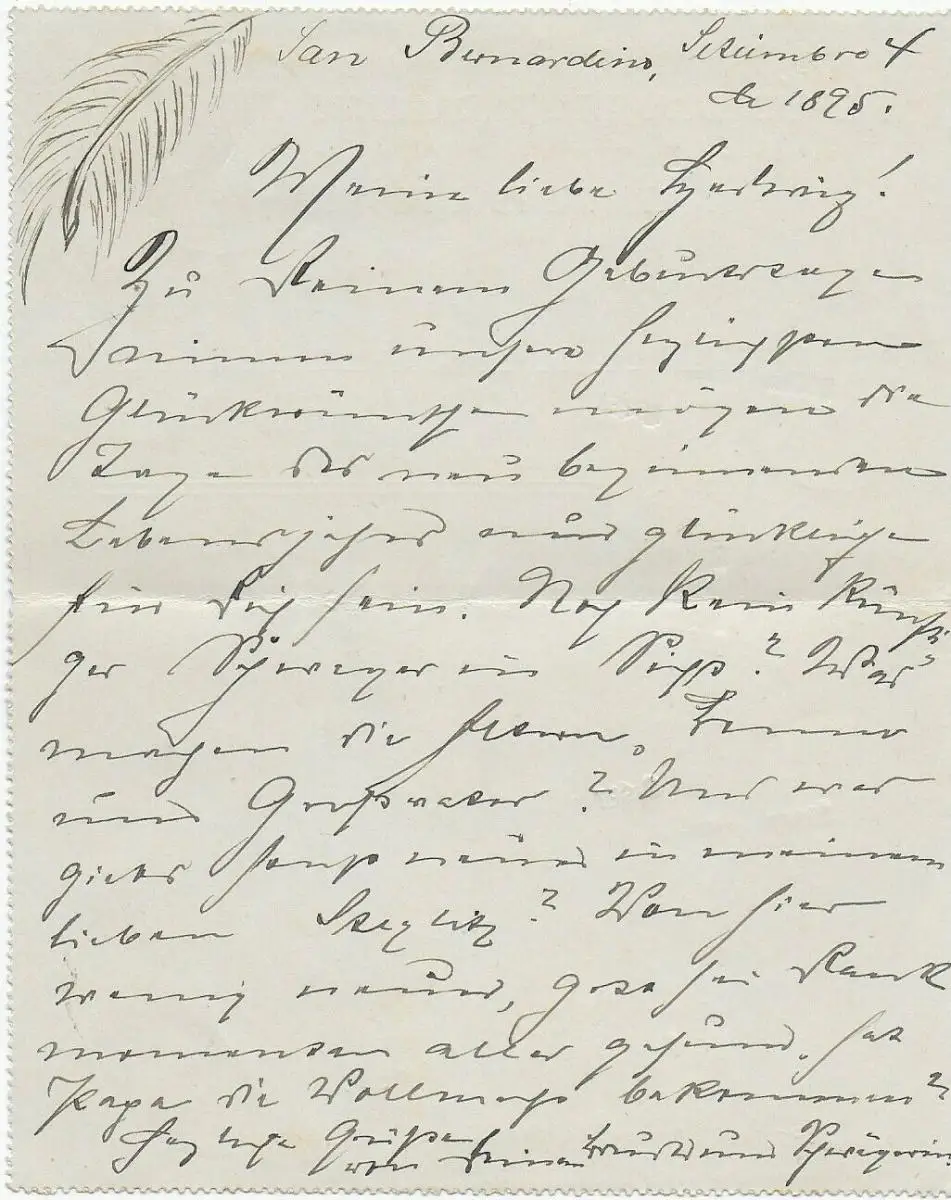 San Bernardino, Setiembre 4
de 1895.
Meine liebe Hedwig!
Zu Deinem Geburtstage
nimm unsere herzlichsten
Glückwünsche mögen die
Tage des neu beginnenden
Lebensjahres nur glückliche
für Dich sein. Noch kein künfti-
ger Schwager in Sicht? Was
machen die Eltern, Benno
und Großvater? Und was
giebts sonst neues in meinem
lieben Steglitz? Von hier
wenig neues, Gott sei Dank
momentan alles gesund. Hat
Papa die Vollmacht bekommen?
Herzliche Grüße
von Deinem Bruder und Schwägerin